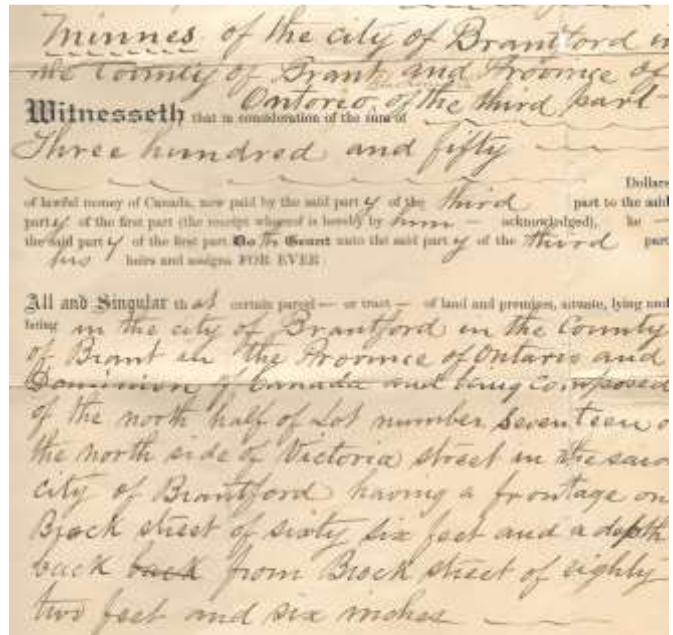 Minnes of the city of Brantford in
the County of Brant and Province of
Ontario of the third part
Witnesseth that in consideration of the sum of
Three hundred and fifty
Dollars
of lawful money of Canada, now paid by the said party of the third part to the said
party of the first part (the receipt whereof is hereby by him — acknowledged), he —
the said party of the first part Doth Grant unto the said party of the third part
his heirs and assigns FOR EVER
All and Singular that certain parcel — or tract — of land and premises, situate, lying and
being in the city of Brantford in the County
of Brant in the Province of Ontario and
Dominion of Canada and being composed
of the north half of Lot number seventeen o
the north side of Victoria street in the said
city of Brantford having a frontage on
Brock street of sixty six feet and a depth
back back from Brock street of eighty
two feet and six inches